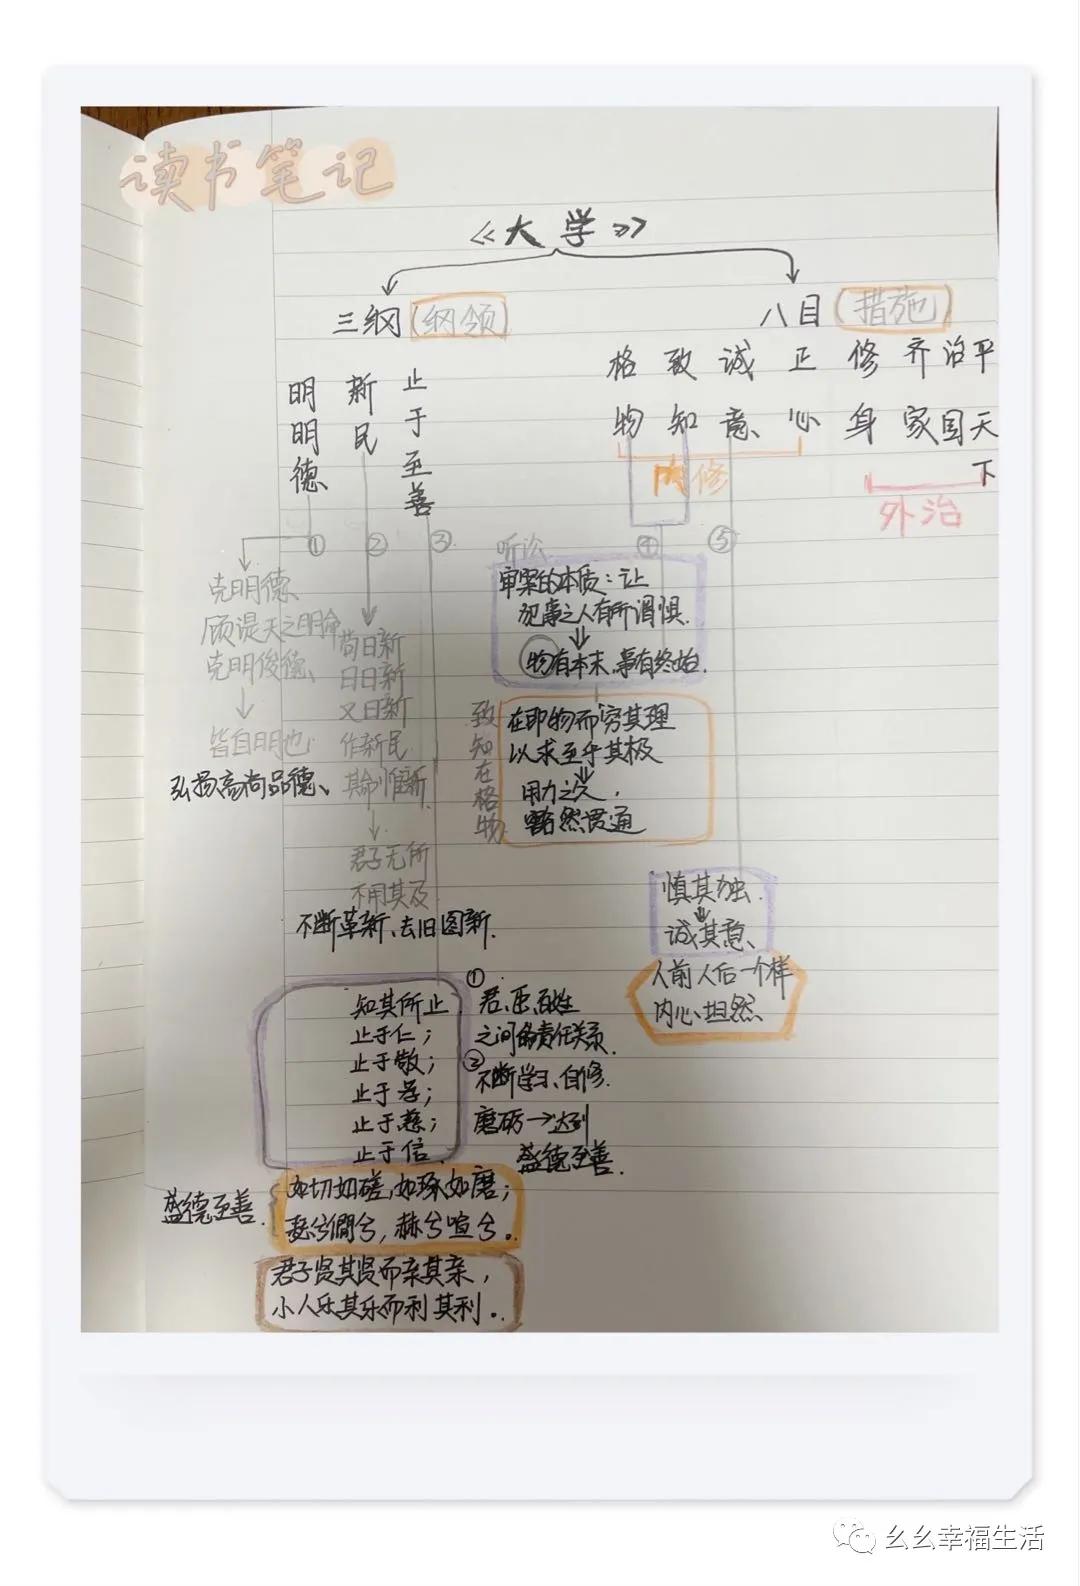 读书笔记
《大学》
三纲(纲领)
八目(措施)
明明德
新民
止于至善
格物
致知
诚意
正心
修身
齐家
治国
平天下
内修
外治
①
②
③
④
⑤
克明德、
顾諟天之明命
克明俊德、
皆自明也
弘扬高尚品德、
苟日新
日日新
又日新
作新民
其命惟新
君子无所
不用其及
不断革新、去旧图新.
听讼
审案的本质:让
犯事之人有所谓惧.
物有本末,事有终始.
致知在格物
在即物而穷其理
以求至乎其极
用力之久,
豁然贯通
慎其独
诚其意、
人前人后一个样
内心坦然
知其所止
止于仁;
止于敬;
止于孝;
止于慈;
止于信、
①
君、臣、百姓
之间的责任关系.
②
不断学习、自修.
磨砺→达到
盛德至善.
盛德至善.
如切如磋,如琢如磨;
瑟兮僩兮,赫兮喧兮。
君子贤其贤而亲其亲,
小人乐其乐而利其利。
幺幺幸福生活